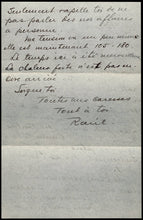 Seulement rappelle toi de ne
pas parler des nos affaires
a personne.
Ma tension un peu
elle est maintenant 105-180
Le temps ici a été merveilleux
La chaleur forte n'est pas
arrivé
Soigne to
Toutes mes caresses
Tout à toi